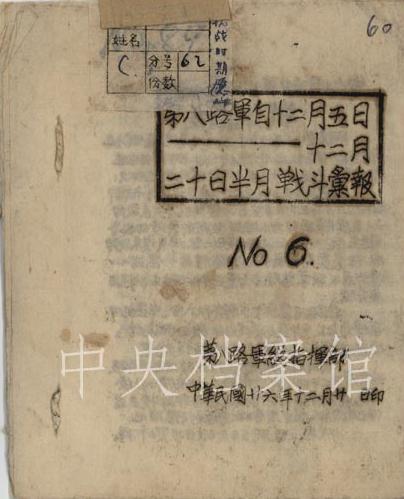 60
姓名
C
分号
62
份数
抗战时期
第八路軍自十二月五日
——十二月
二十日半月戦斗彙報
No 6.
第八路軍總指揮部
中央档案馆
中華民國廿六年十二月廿 日印